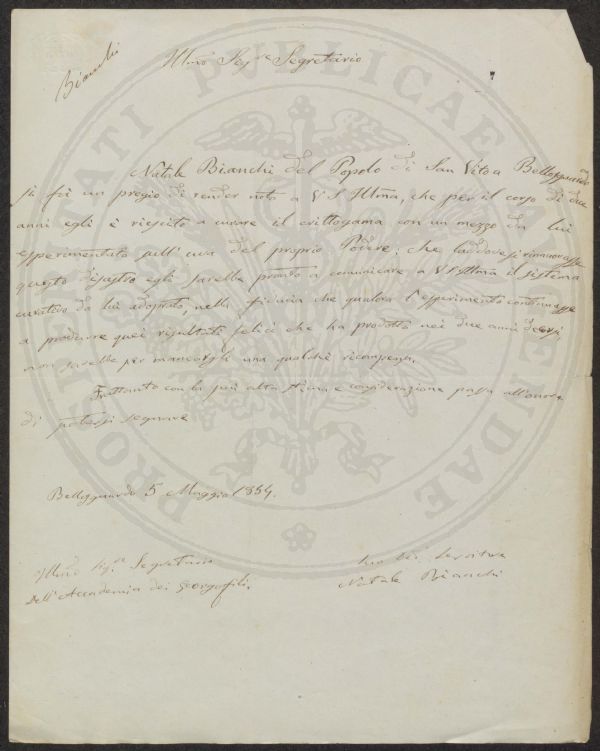 Bianchi
Illmo Sigre Segretario
Natale Bianchi del Popolo di San Vito a Bellosguardo
si fà un pregio di render noto a V S Illma, che per il corso di due
anni egli è riescito a curare il crittogama con un mezzo da lui
esperimentato sull'uva del proprio Podere; che laddove si rinnovasse
questo disastro egli sarebbe pronto a comunicare a V S Illma il sistema
curativo da lui adoprato, nella fiducia che qualora l'esperimento continuasse
a produrre quei risultati felici che ha prodotto nei due anni decorsi,
non sarebbe per mancargli una qualche ricompensa.
Frattanto con la più alta stima e considerazione passa all'onore
di potersi segnare
Bellosguardo 5 Maggio 1854.
Illmo Sigre Segretario
Dell'Accademia dei Georgofili.
Suo Servitore
Natale Bianchi
PROSPERITATI PUBLICAE AUGENDAE